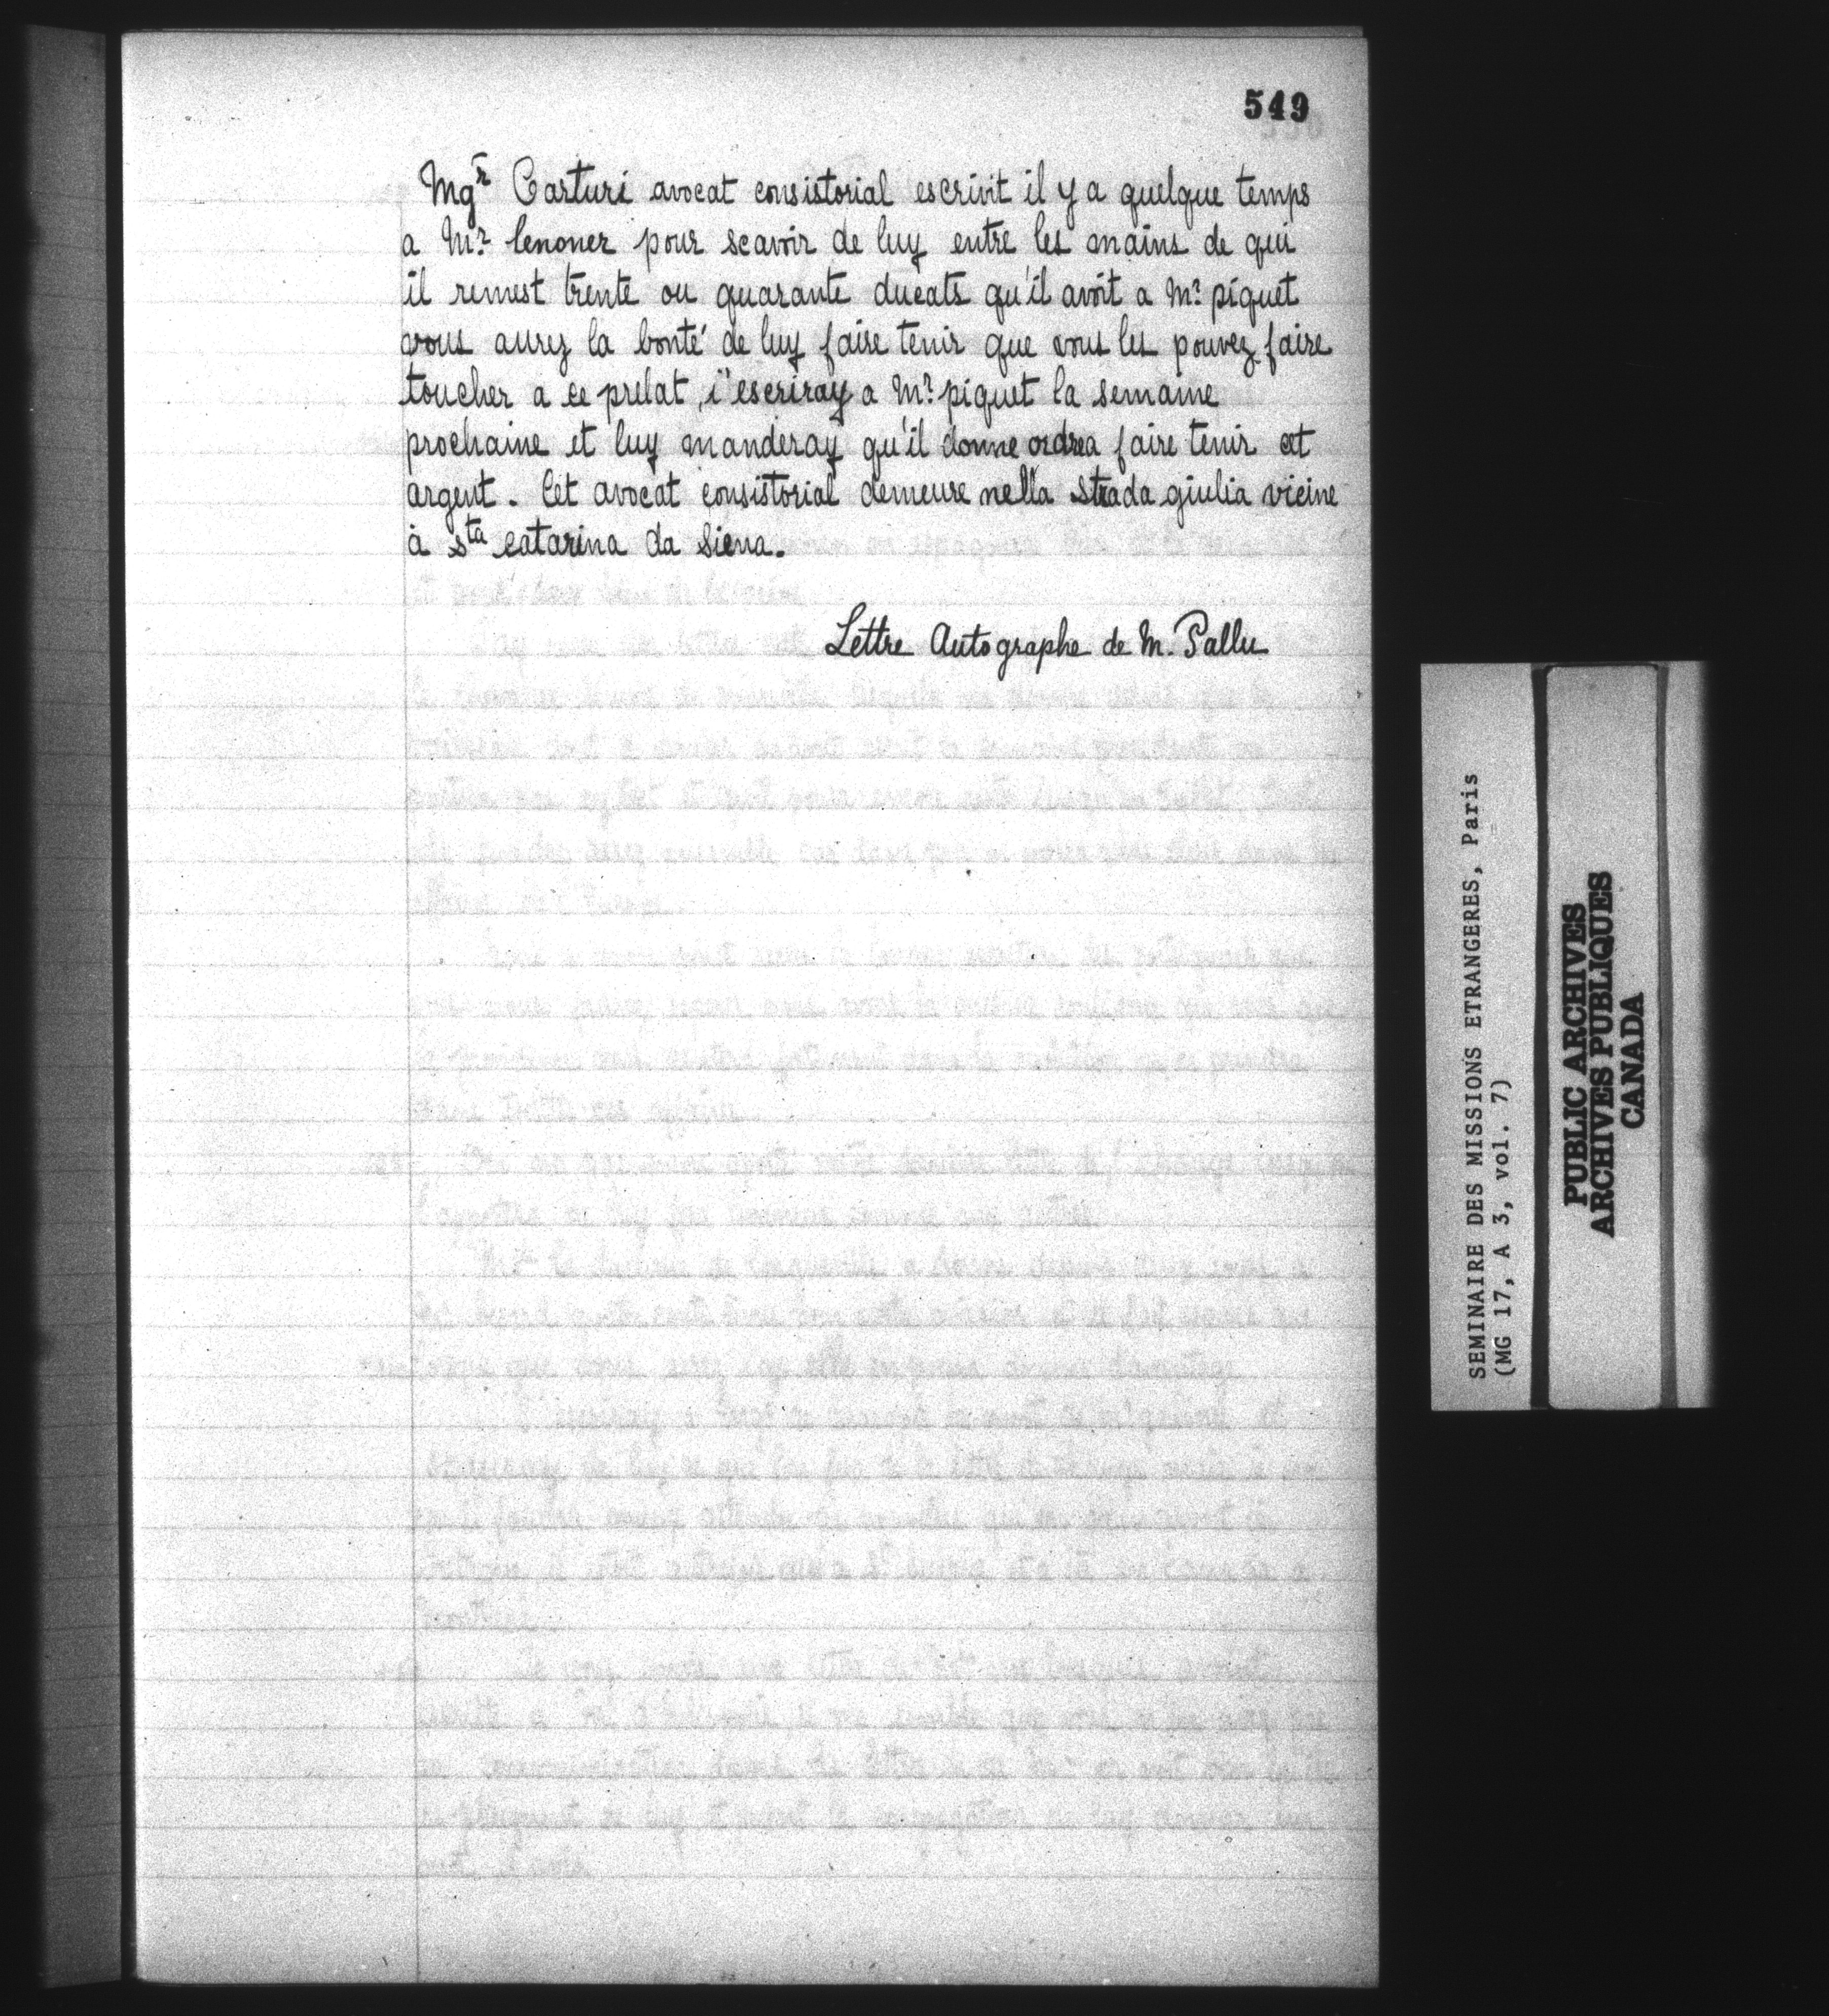 549
Mgr Carturi avocat consistorial escrivit il y a quelque temps
a Mr lenoner pour scavoir de luy entre les mains de qui
il remest trente ou quarante ducats qu'il avoit a Mr piquet
vous aurez la bonté de luy faire tenir que vous les pouvez faire
toucher a ce prelat, i'escriray a Mr piquet la semaine
prochaine et luy manderay qu'il donne ordrea faire tenir cet
argent. Cet avocat consistorial demeure nella strada giulia vicine
à sta catarina da Siena.
Lettre Autographe de M. Pallu
SEMINAIRE DES MISSIONS ETRANGERES, Paris
(MG 17, A 3, vol. 7)
PUBLIC ARCHIVES
ARCHIVES PUBLIQUES
CANADA